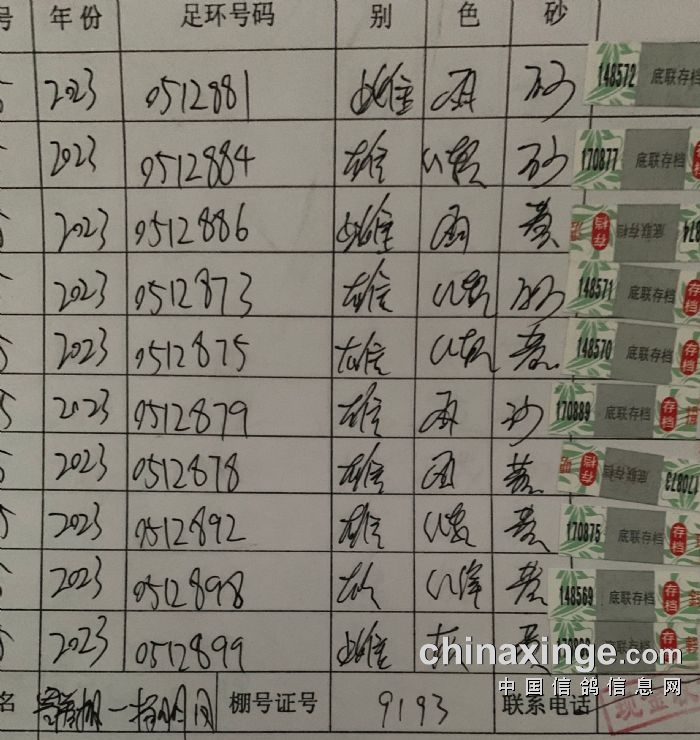 号 年份 足环号码 别 色 砂
2023 0512881 雌 雨 砂 148572 底联存档
2023 0512884 雄 砂 170877 底联存档
2023 0512886 雌 雨 黄 存档 底联存档
2023 0512873 雄 砂 148571 底联存档 存档
2023 0512875 雄 黄 148570 底联存档 存档
2023 0512879 雄 雨 沙 170889 底联存档 存档
2023 0512878 雄 雨 黄 存档 底联存档 170873
2023 0512892 雄 黄 170875 底联存档 存档
2023 0512898 黄 148569 底联存档 存档
2023 0512899 雌 灰 黄 底联存档 存档
名 棚号证号 9193 联系电话
chinaxinge.com
中国信鸽信息网
现金